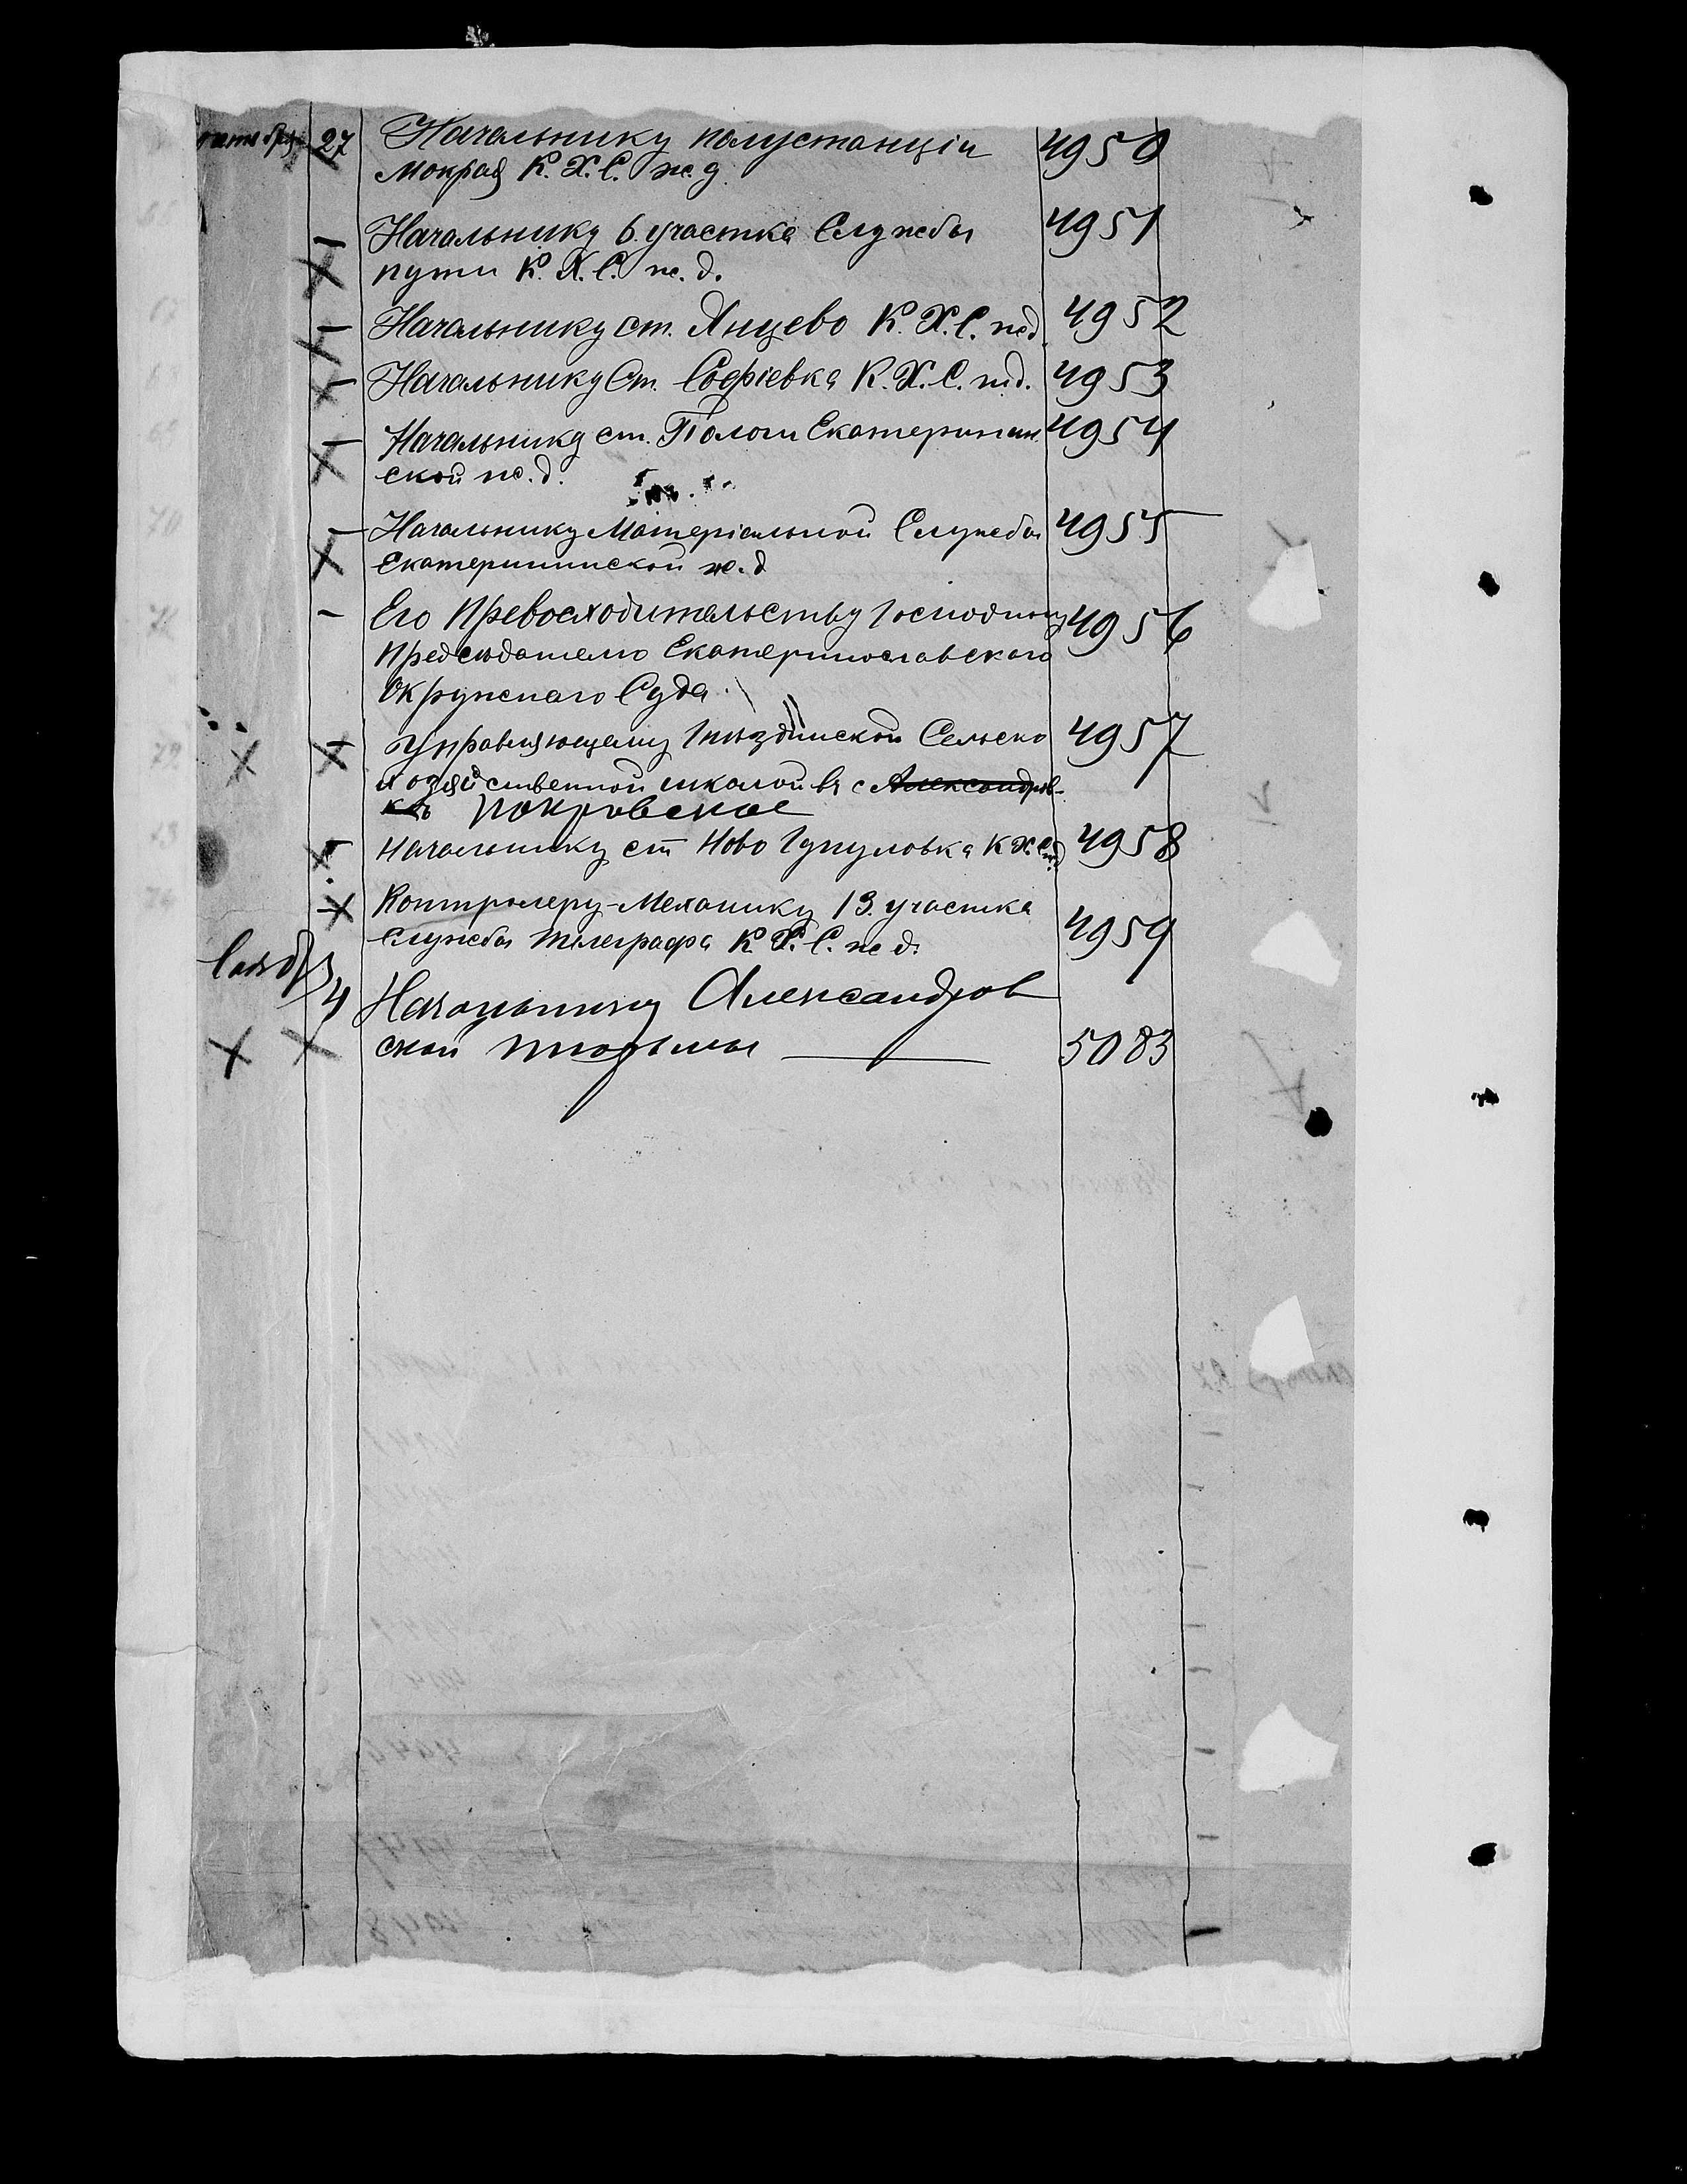 октября 27 Начальнику полустанціи 4950
Мокрая К. Х. С. ж. д.
— Начальнику 6. участка Службы 4951
пути К. Х. С. ж. д.
— Начальнику ст. Янцево К. Х. С. жд. 4952
— Начальнику Ст. Софіевка К. Х. С. жд. 4953
— Начальнику ст. Пологи Екатеринин 4954
ской ж. д.
— Начальнику Матеріальной Службы 4955
Екатерининской ж. д
— Его Превосходительству Господину 4956
Предсѣдателю Екатеринославскаго
Окружнаго Суда.
— Управляющему Гнѣздинской Сельско 4957
хозяйственной школой въ с Александров-
кѣ Покровское
— Начальнику ст Ново Гупуловка К Х С жд 4958
— Контролеру-Механику 13. участка 4959
Службы телеграфа К. Х. С. ж д.
4 Начальнику Александров
ской тюрьмы — 5083